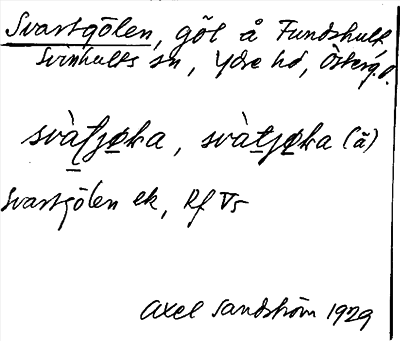 Svartgölen, göl å Fundshult,
Svinhults sn, Ydre hd, Österg.
svartgölen ek, Rf V5
Axel Sandström 1929